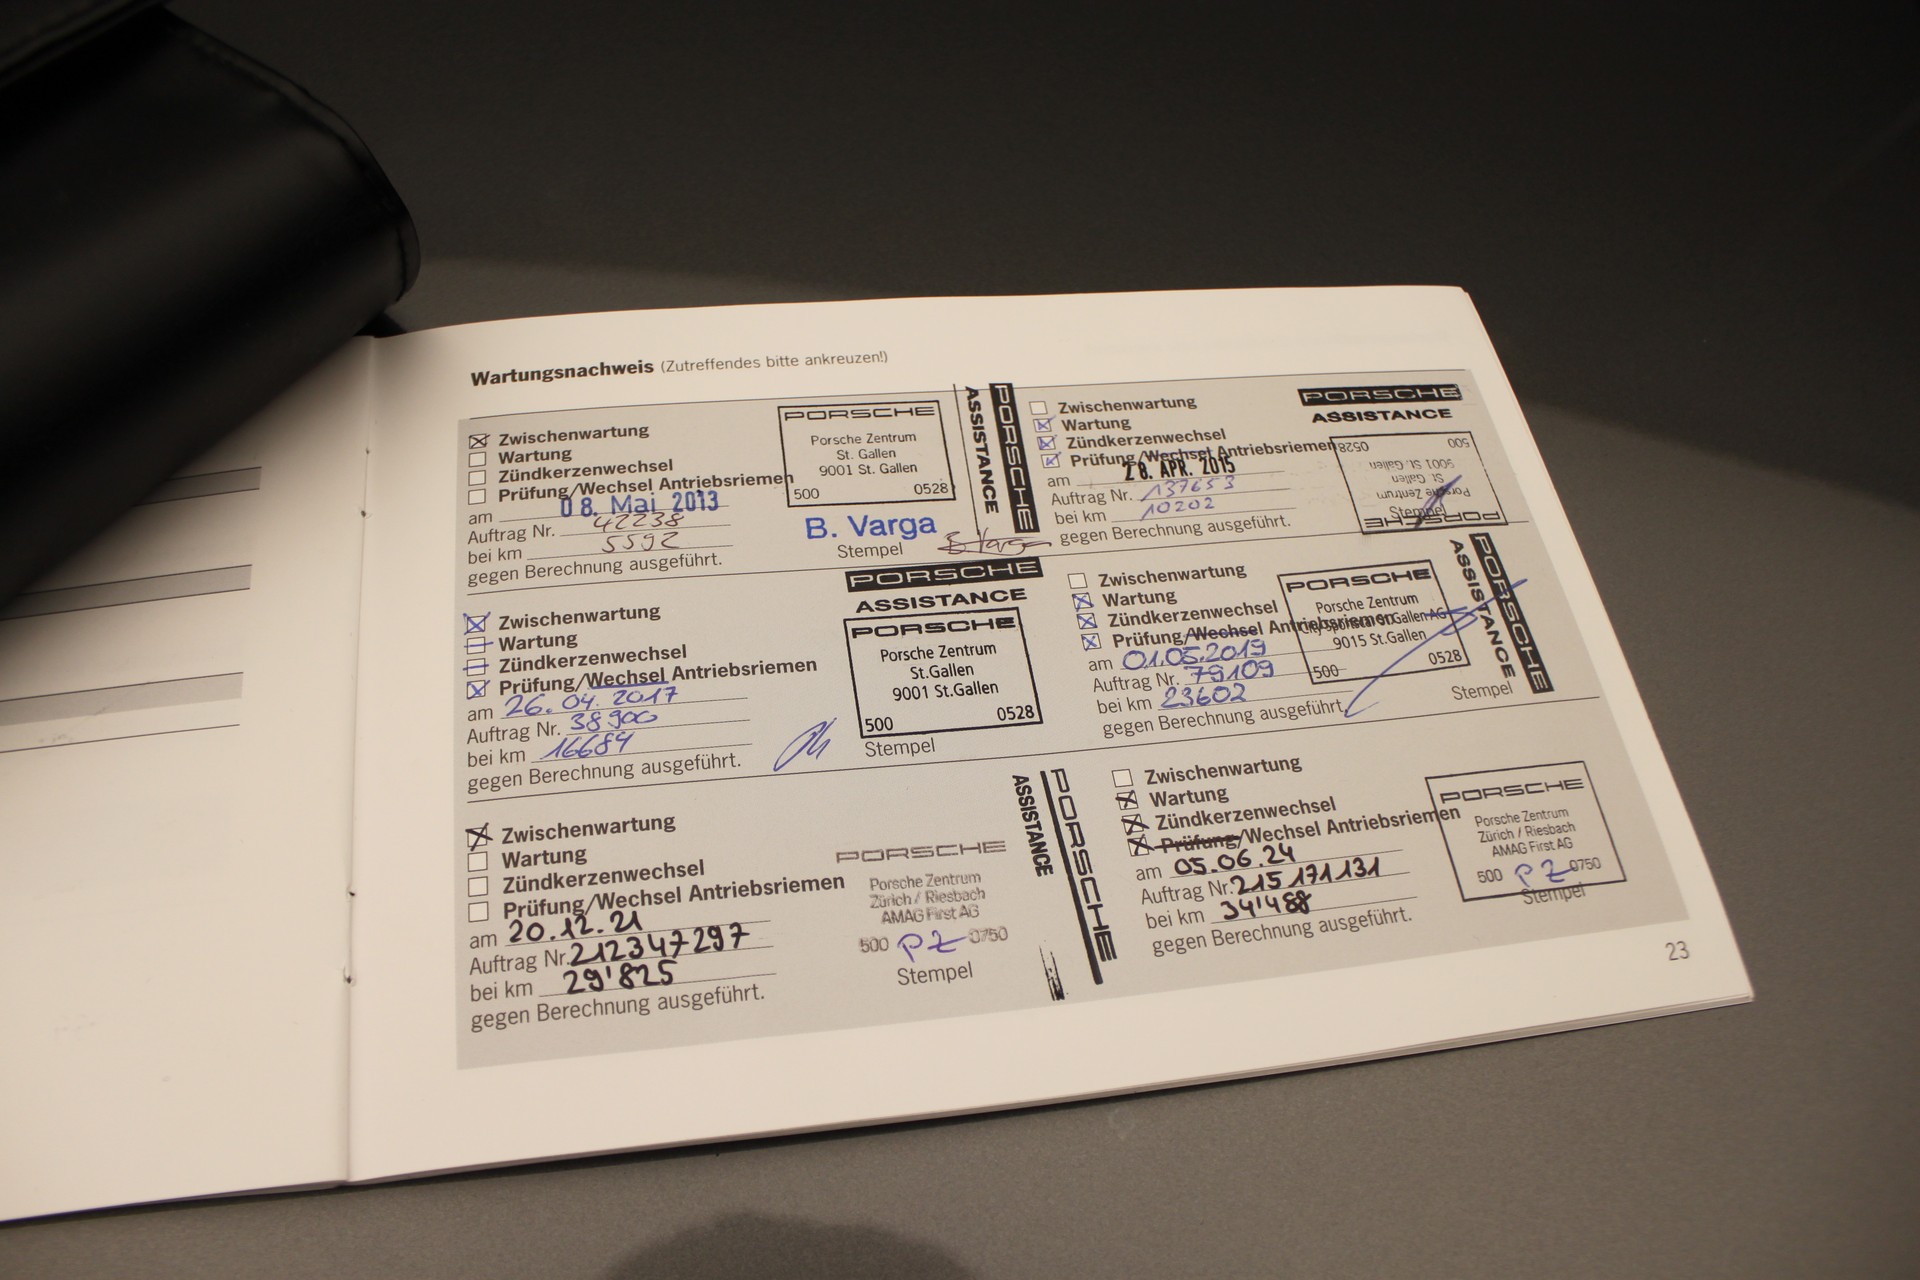 Wartungsnachweis (Zutreffendes bitte ankreuzen!)
Zwischenwartung
Wartung
Zündkerzenwechsel
Prüfung/Wechsel Antriebsriemen
am 08. Mai 2013
Auftrag Nr. 42238
bei km 5592
gegen Berechnung ausgeführt.
PORSCHE
Porsche Zentrum
St. Gallen
9001 St. Gallen
500 0528
B. Varga
Stempel
B. Varga
PORSCHE
ASSISTANCE
Zwischenwartung
Wartung
Zündkerzenwechsel
Prüfung/Wechsel Antriebsriemen
am 28. APR. 2015
Auftrag Nr. 137653
bei km 10202
gegen Berechnung ausgeführt.
PORSCHE
ASSISTANCE
PORSCHE
Porsche Zentrum
St. Gallen
9001 St. Gallen
500 0528
Stempel
Zwischenwartung
Wartung
Zündkerzenwechsel
Prüfung/Wechsel Antriebsriemen
am 26.04.2017
Auftrag Nr. 38900
bei km 16684
gegen Berechnung ausgeführt.
PORSCHE
ASSISTANCE
PORSCHE
Porsche Zentrum
St.Gallen
9001 St.Gallen
500 0528
Stempel
Zwischenwartung
Wartung
Zündkerzenwechsel
Prüfung/Wechsel Antriebsriemen
am 01.05.2019
Auftrag Nr. 79109
bei km 23602
gegen Berechnung ausgeführt.
PORSCHE
Porsche Zentrum
St.Gallen AG
9015 St.Gallen
500 0528
Stempel
PORSCHE
ASSISTANCE
Zwischenwartung
Wartung
Zündkerzenwechsel
Prüfung/Wechsel Antriebsriemen
am 20.12.21
Auftrag Nr. 212347297
bei km 29'825
gegen Berechnung ausgeführt.
PORSCHE
Porsche Zentrum
Zürich / Riesbach
AMAG First AG
500 PZ 0750
Stempel
PORSCHE
ASSISTANCE
Zwischenwartung
Wartung
Zündkerzenwechsel
Prüfung/Wechsel Antriebsriemen
am 05.06.24
Auftrag Nr. 215171131
bei km 34'488
gegen Berechnung ausgeführt.
PORSCHE
Porsche Zentrum
Zürich / Riesbach
AMAG First AG
500 PZ 0750
Stempel
23